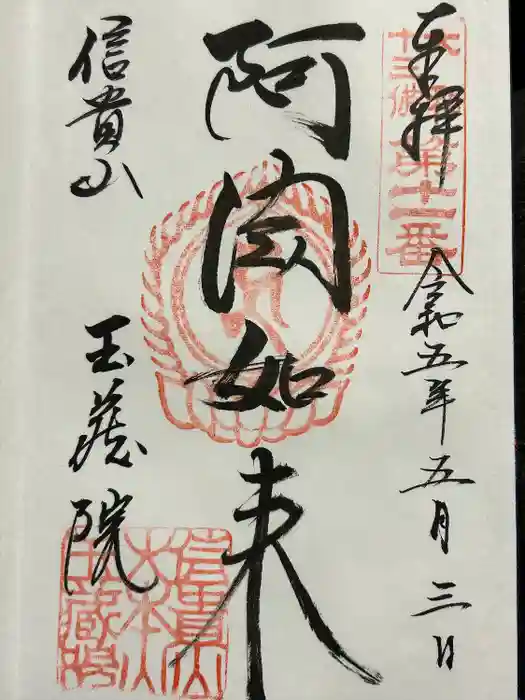 奉拝
十三佛
第十二番
令和五年五月三日
阿閦如来
信貴山
玉蔵院
信貴山
大本山
玉蔵院